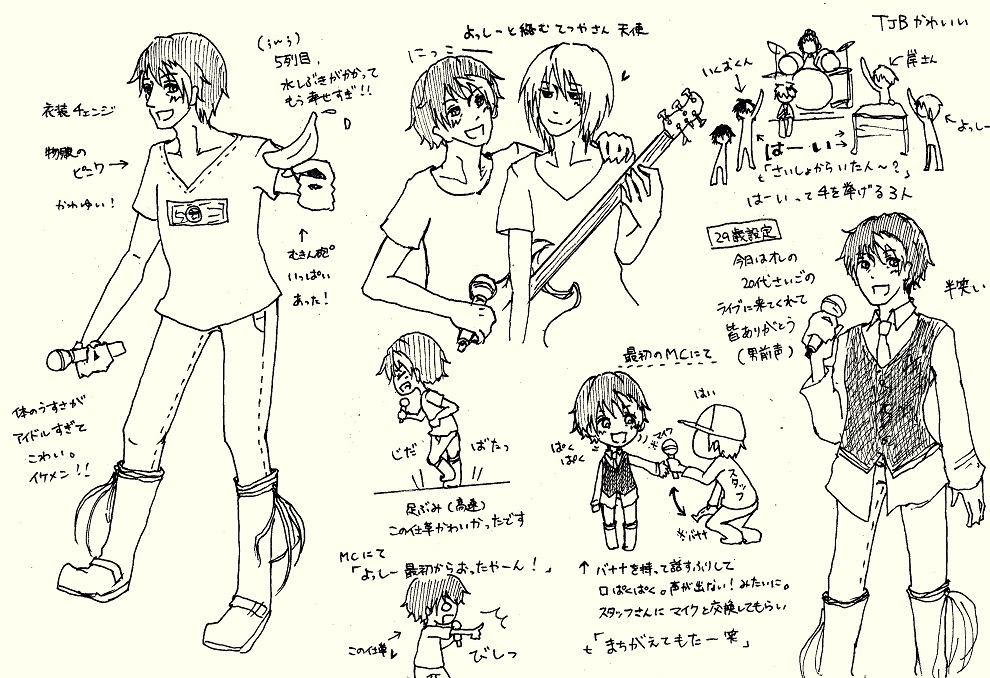 衣装チェンジ
物販の
ピンク→
かわゆい！
(ﾟωﾟ)
5列目、
水しぶきがかかって
もう幸せすぎ!!
↑
むきん砲
いっぱい
あった！
体のうすさが
アイドルすぎて
こわい。
イケメン!!
よっしーと絡むてつやさん 天使
にっこー
じだ
ばたっ
足ぶみ(高速)
この仕草かわいかったです
MCにて
「よっしー 最初からおったやーん！」
この仕草
びしっ
TJBかわいい
いくおくん
岸さん
よっしー
はーい→
「さいしょからいたん〜？」
はーいって手を挙げる3人
29歳設定
今日はオレの
20代さいごの
ライブに来てくれて
皆ありがとう
(男前声)
半笑い
最初のMCにて
ぱく
ぱく
はい
※マイク
スタッフ
※バナナ
↑バナナを持って話すふりして
口ぱくぱく。声が出ない！みたいに。
スタッフさんにマイクと交換してもらい
「まちがえてもたー笑」